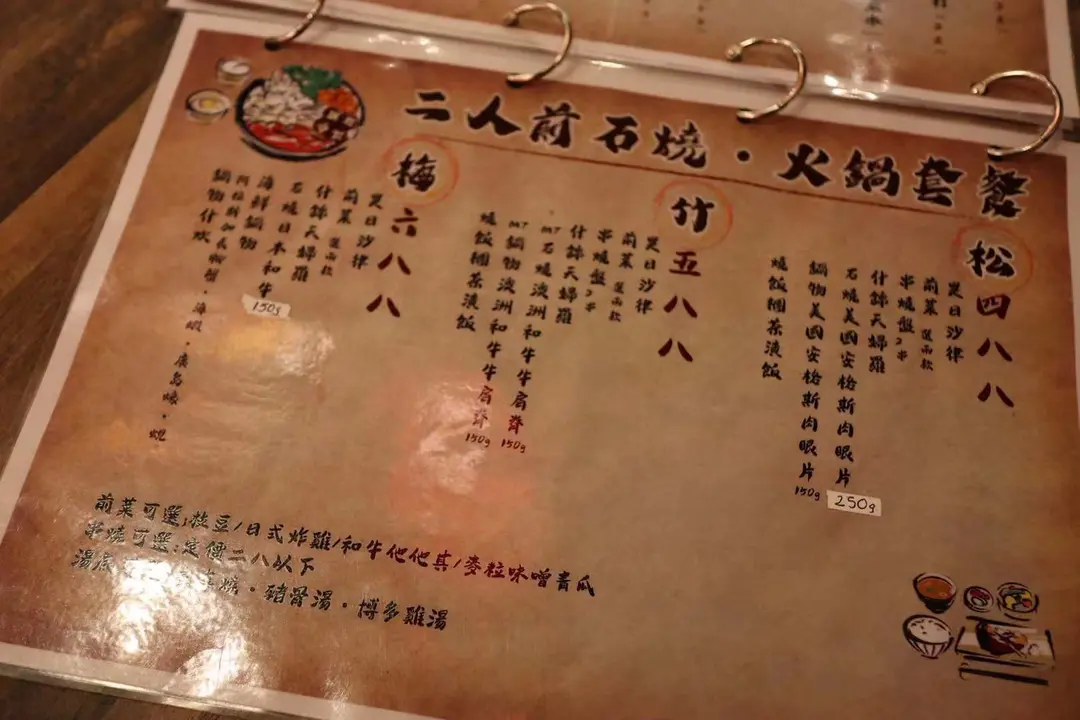 二人前石燒・火鍋套餐
松
四八八
是日沙律
前菜 選兩款
串燒盤 2串
什錦天婦羅
石燒美國安格斯肉眼片 250g
鍋物美國安格斯肉眼片 150g
燒飯糰茶漬飯
竹
五八八
是日沙律
前菜 選兩款
串燒盤 2串
什錦天婦羅
M7石燒澳洲和牛牛肩脊 150g
M7鍋物澳洲和牛牛肩脊 150g
燒飯糰茶漬飯
梅
六八八
是日沙律
前菜 選兩款
什錦天婦羅
石燒日本和牛 150g
海鮮鍋物
蟹・海蝦・廣島蠔・蜆
鍋物什炊
前菜可選:枝豆/日式炸雞/和牛他他其/麥粒味噌青瓜
串燒可選:定價二八以下
湯底 豬骨湯・博多雞湯